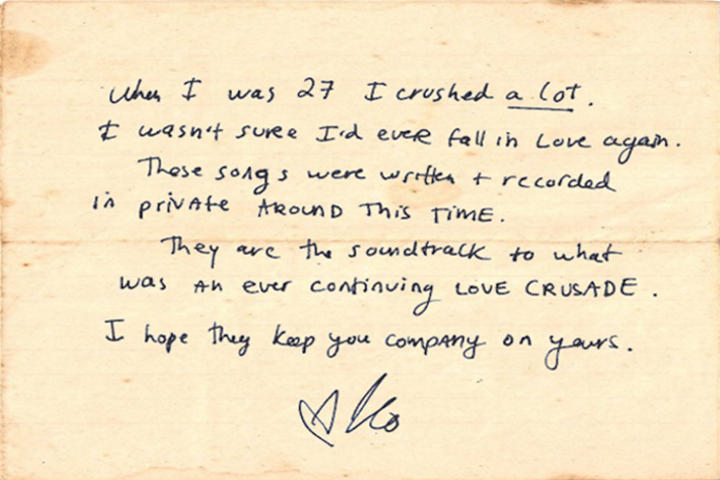 When I was 27 I crushed a lot.
I wasn't sure I'd ever fall in Love again.
These songs were written + recorded
in private AROUND This TIME.
They are the soundtrack to what
was an ever continuing LOVE CRUSADE.
I hope they keep you company on yours.
KO